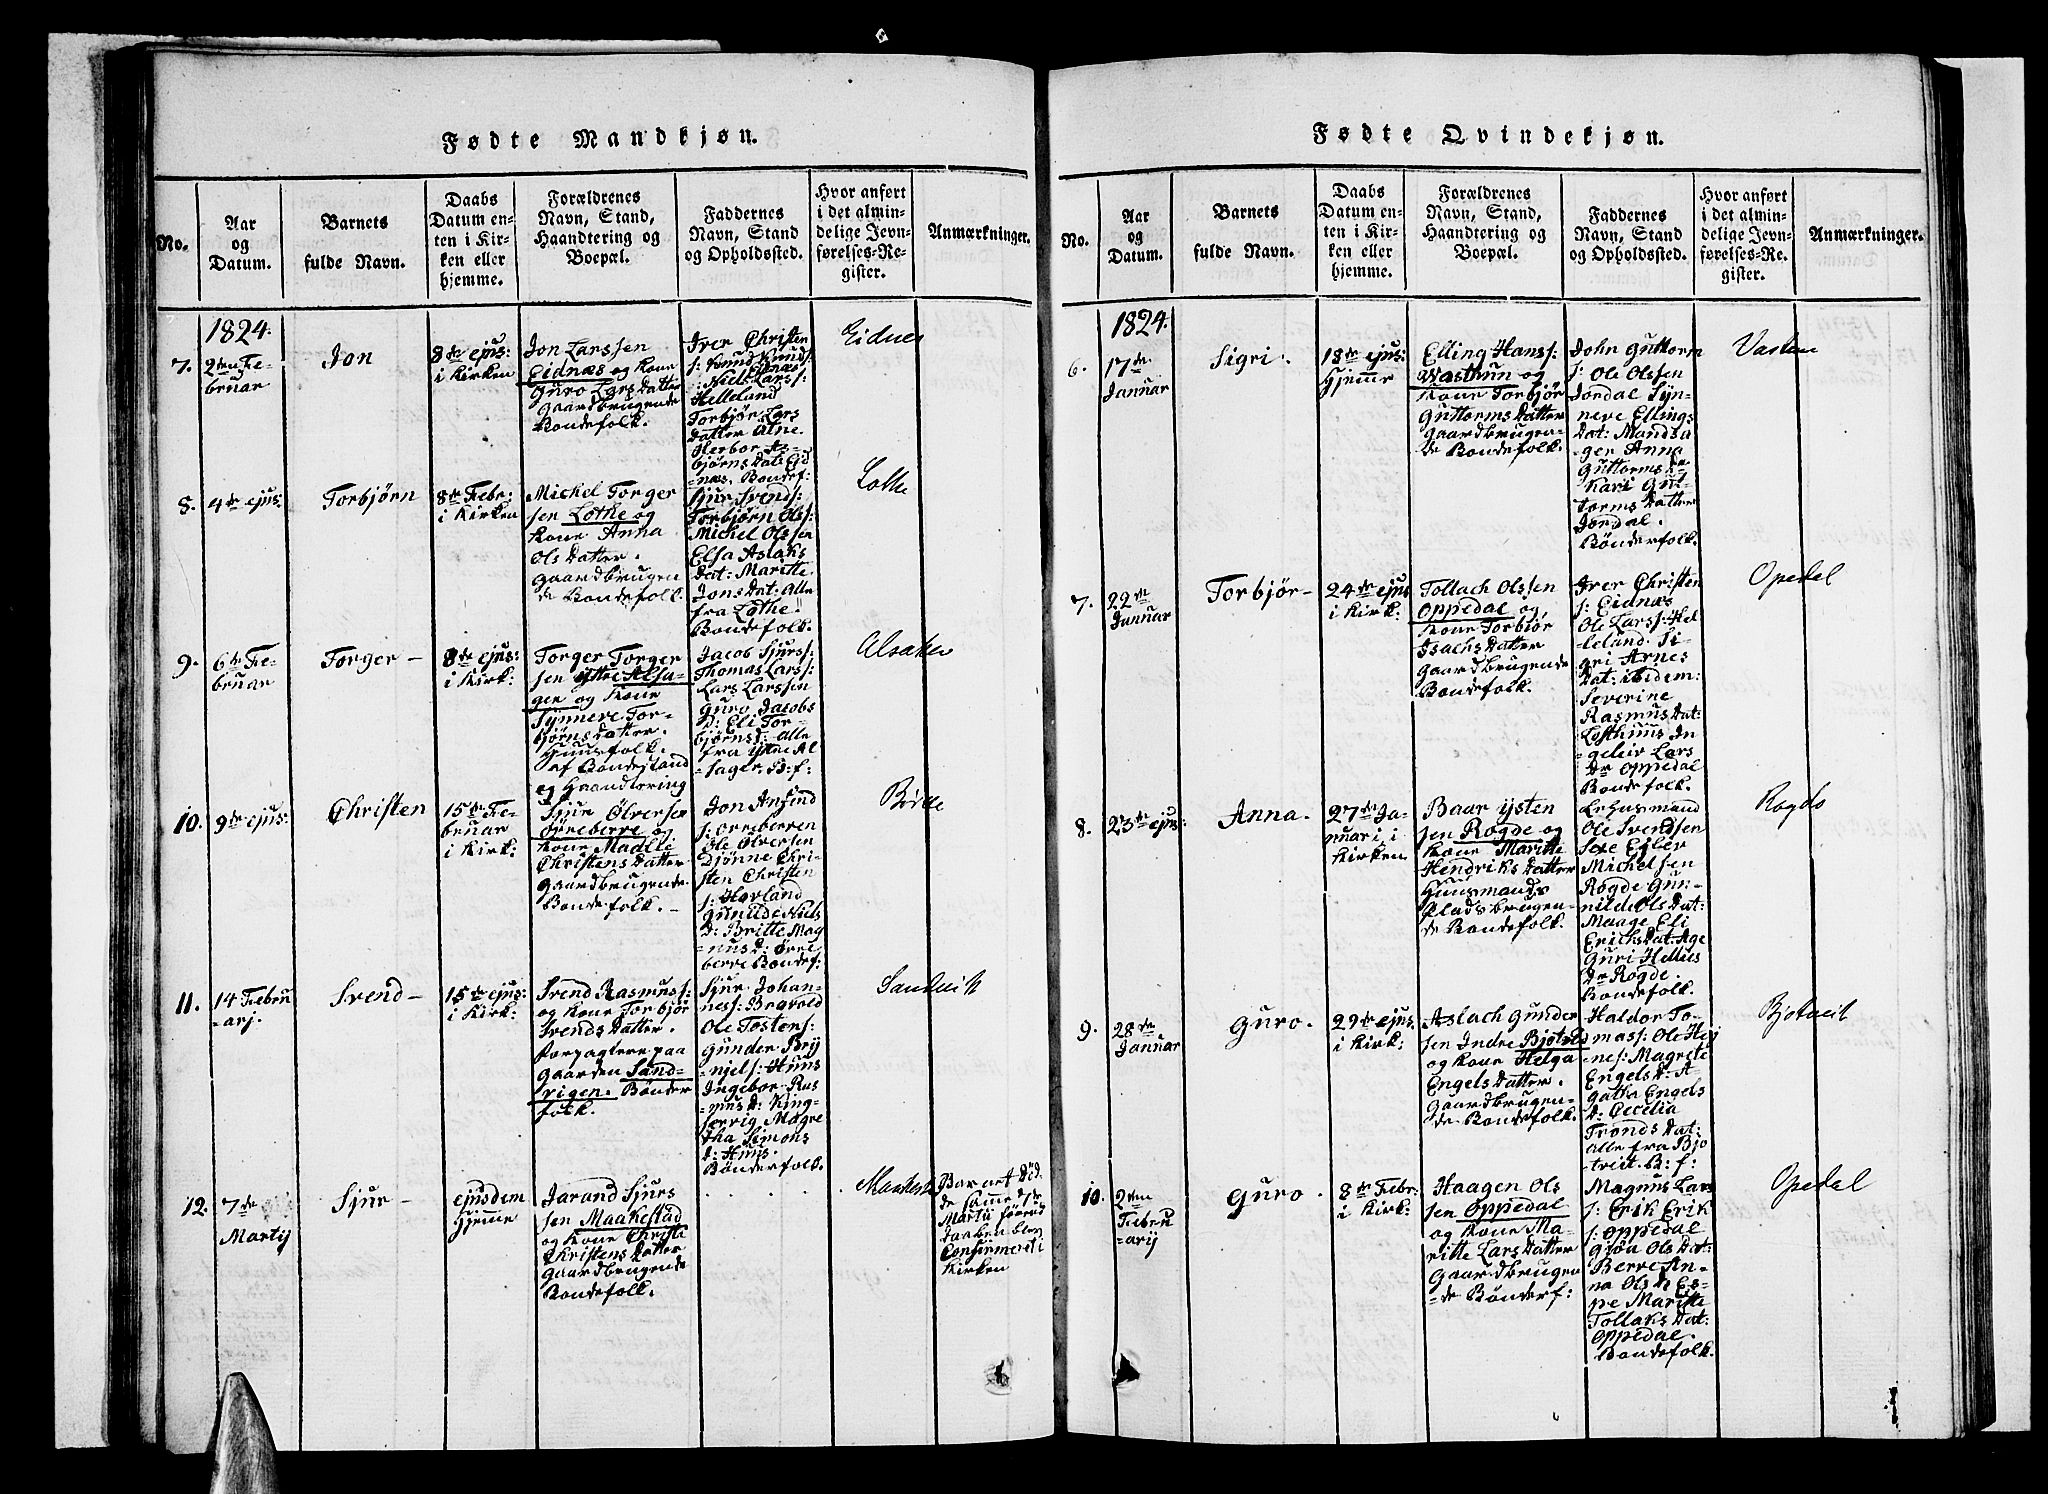 Fødte Mandkjøn.
No.
Aar
og
Datum.
Barnets
fulde Navn.
Daabs
Datum en-
ten i Kir-
ken eller
hjemme.
Forældrenes
Navn, Stand,
Haandtering og
Boepæl.
Faddernes
Navn, Stand
og Opholdssted.
Hvor anført
i det almin-
delige Jevn-
førelses-Re-
gister.
Anmærkninger.
1824.
7.
2den Fe-
bruar
Jon
8de ejus:
i Kirken
Jon Larssen
Eidnæs og Kone
Guro Lars Datter
Gaardbrugende
Bondefolk.
Iver Christen
s: Knud Knuds:
: Niels Lars:
Helleland
Torbjør Lars
Datter Alne
Herbor As-
bjørns Dat: Eid
næs. Bondef:
Eidnes
8.
4de ejus:
Torbjörn
8de Febr:
i Kirken
Michel Torger
sen Lothe og
Kone Anna
Ols Datter.
Gaardbrugen
de Bondefolk.
Sjur Svends:
Torbjörn Ols:
Michel Olssen
Elsa Aslaks
Dat: Maritte
Jons Dat: Alle
fra Lothe.
Bondefolk.
Lothe
9.
6de Fe-
bruar
Torger -
8de ejus:
i Kirk:
Torger Torger
sen ytre Alsa-
ger og Kone
Synneve Tor-
bjørnsdatter.
Huusfolk.
af Bondestand
og Haandtering
Jacob Sjurs:
Thomas Lars:
Lars Larssen
Guro Jacobs
D: Eli Tor-
bjørnsd: alle
fra ystre Al
sager. B: f:
Alsaker
10.
9de ejus:
Christen
15de Fe-
bruar
i Kirk:
Sjur Ölversen
Ørreberre og
Kone Madlie
Christens Datter
Gaardbrugende
Bondefolk.
Jon Anfind
s: orreberren
Ole Olversen
Djønne Chri-
sten Christen
s: Hovland
Gunilde Niels
D: Britte Mag
nusd: Ørre-
berre Bondef:
11.
14 Febru
-arj.
Svend -
15de ejus:
i Kirk:
Svend Rasmuss:
og Kone Torbjør
Svends Datter.
Forpagtere paa
Gaarden Sand-
vigen. Bønder
folk.
Sjur Johan-
nes: Bagvold
Ole Tostens:
Gunder Bry
njels: Huus
Ingebor Ras
musd: King-
servig Magre
tha Simons
d: Huus.
Bønderfolk.
Sandvik
12.
7de
Martij
Sjur -
ejusdem
hjemme
Jarand Sjurs
sen Maakestad
og Kone Christi
Christens Datter
Gaardbrugende
Bondefolk.
Daaben blev
Confirmert i
Kirken
Fødte Qvindekjøn.
No.
Aar
og
Datum.
Barnets
fulde Navn.
Daabs
Datum en-
ten i Kir-
ken eller
hjemme.
Forældrenes
Navn, Stand,
Haandtering og
Boepæl.
Faddernes
Navn, Stand
og Opholdssted.
Hvor anført
i det almin-
delige Jevn-
førelses-Re-
gister.
Anmærkninger.
1824.
6.
17de
Januar
Sigri.
18de ejus:
Hjeme
Elling Hanss:
Wasthun og
Kone Torbjör
Guttorms Datter
Gaardbrugen-
de Bondefolk.
John Guttorm
s: Ole Olssen
Jordal Syn-
neve Ellings
Dat: Mandsa
ger Anna
Guttorms dr
Kari Gut-
torms Datter
Jordal.
Bønderfolk.
7.
22de
Januar
Torbjør-
24de ejus
i Kirk:
Tollach Olssen
Oppedal og
Kone Torbjör
Isachs Datter
Gaardbrugende
Bondefolk.
Iver Christen
s: Eidnæs
Ole Larss: Hel
leland. Si-
gri Arnes
Dat: ibidem:
Severine
Rasmus Dat:
Losthuus In
geleiv Lars
Dr Oppedal
Bondefolk.
Opedal
8.
23de ejus:
Anna.
27de Ja-
nuar i
Kirken
Baar ysten
sen Rogde og
Kone Maritte
Hendriks Datter
Huusmands
Pladsbrugen-
de Bondefolk.
Ole Svendsen
Michelsen
Rogde Gun-
nilde Ols Dat:
Maage Eli
Erichs Dat: Age
Guri Hellies
Dr Rogde.
Bondefolk.
9.
28de
Januar
Guro.
29de ejus
i Kirk:
Aslach Gunder
sen Indre Bjotvet
og Kone Helga
Engels Datter.
Gaardbrugen-
de Bondefolk.
Haldor To-
mas: Ole Hej
nes: Magrete
Engels D: A-
gatha Engels
D: Cecelia
Tronds Dat:
alle fra Bjo
tveit. B: f:
10.
2den
Febru
-arij
Guro.
8de Febr:
i Kirk:
Haagen Ols
sen Oppedal
og Kone Ma-
ritte Lars Datter
Gaardbrugen
de Bønderf:
Magnus Lars
s: Erik Erik
s: Oppedal
Gjøa Ols Dat:
Berre An-
na Ols D: Es-
pe Maritte
Tollaks Dat:
Oppedal.
Bondefolk.
Opedal